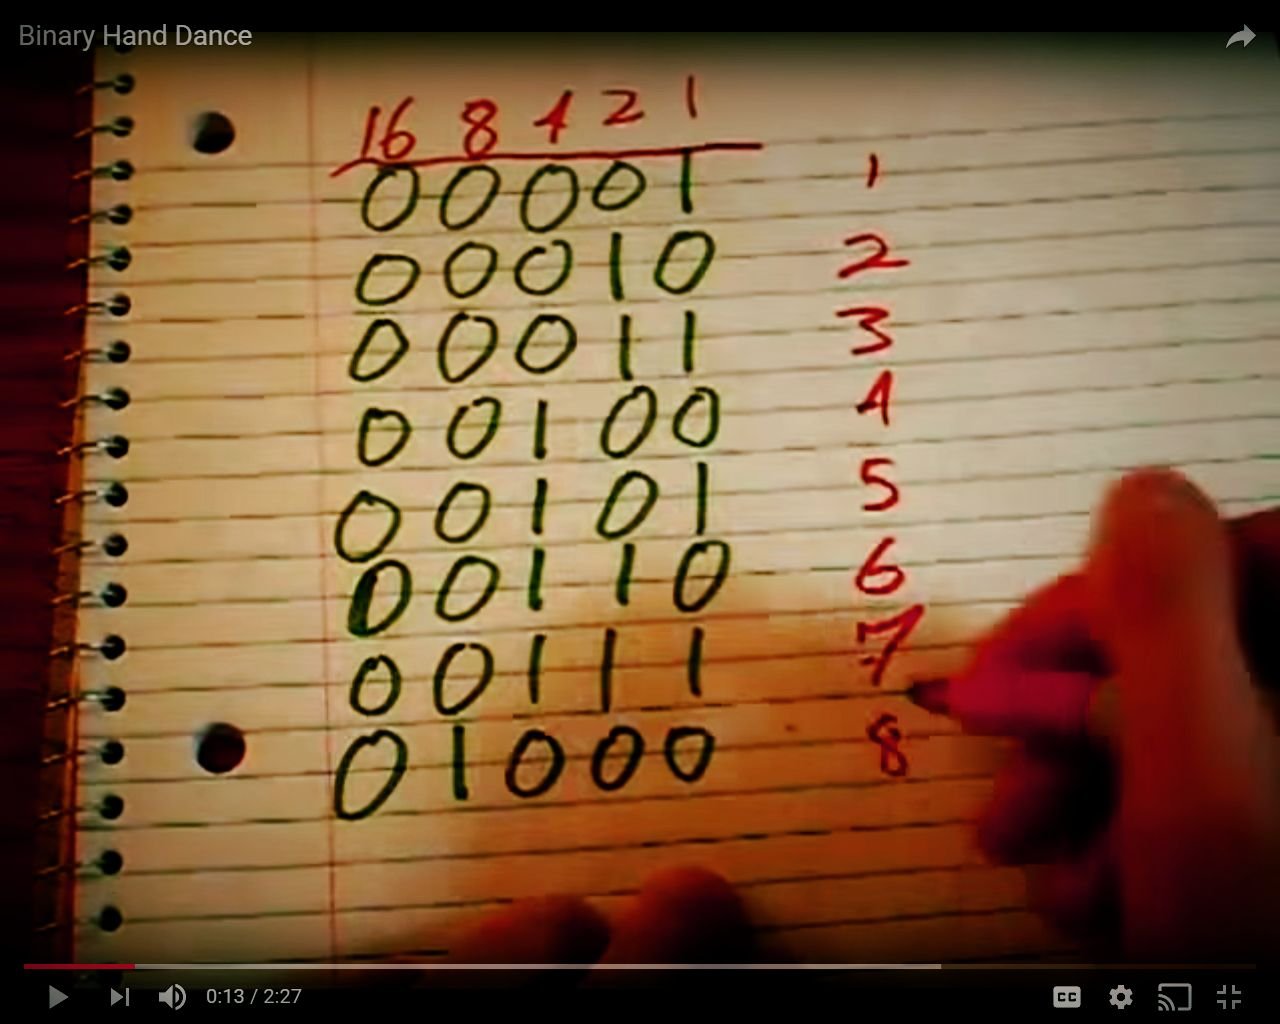 Binary Hand Dance
16 8 4 2 1
0 0 0 0 1 1
0 0 0 1 0 2
0 0 0 1 1 3
0 0 1 0 0 4
0 0 1 0 1 5
0 0 1 1 0 6
0 0 1 1 1 7
0 1 0 0 0 8
0:13 / 2:27
CC